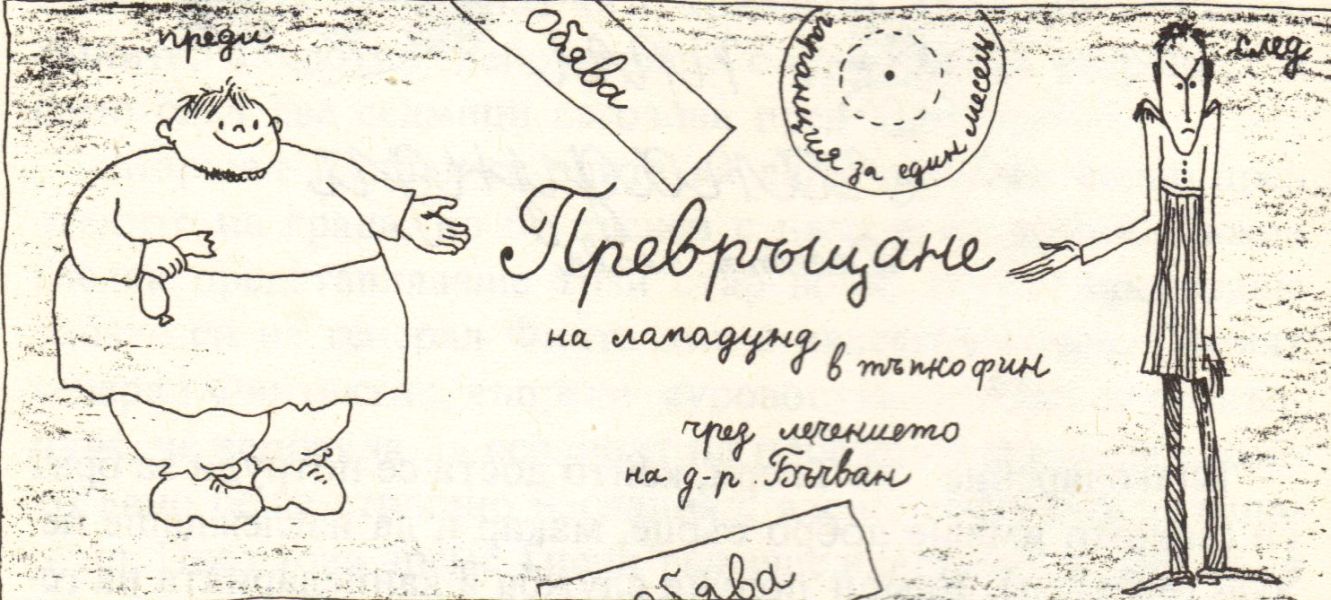 преди
Обява
гаранция за един месец
след
Превръщане
на лападунд
в тъпкофин
чрез лечението
на д-р. Бъчван
обява